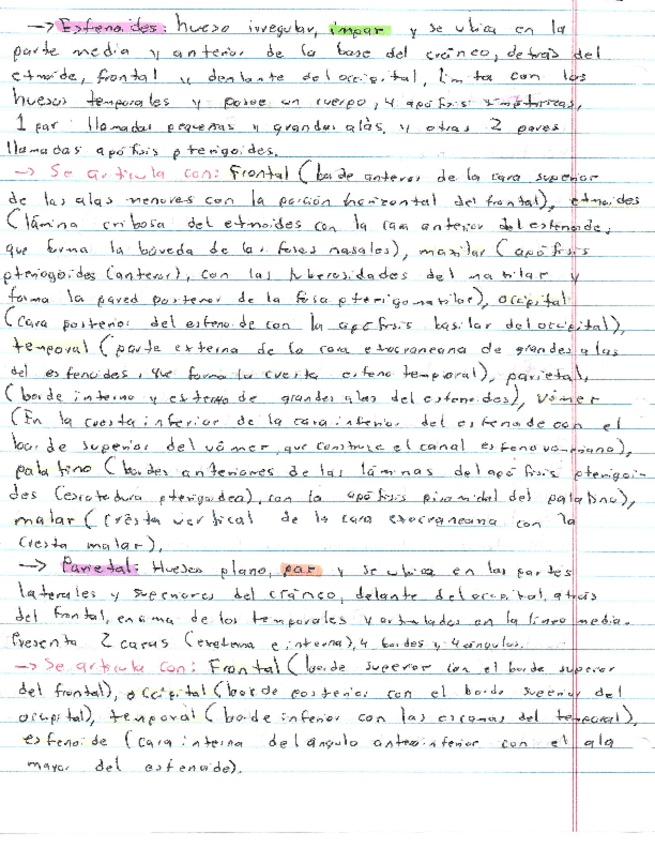 → Esfenoides: hueso irregular, impar y se ubica en la
parte media y anterior de la base del cráneo, detrás del
etmoide, frontal y delante del occipital, limita con los
huesos temporales y posee un cuerpo, 4 apófisis simétricas,
1 par llamadas pequeñas y grandes alas, y otras 2 pares
llamadas apófisis pterigoides.
→ Se articula con: Frontal (borde anterior de la cara superior
de las alas menores con la porción horizontal del frontal), etmoides
(lámina cribosa del etmoides con la cara anterior del esfenoide,
que forma la bóveda de las fosas nasales), maxilar (apófisis
pteriogoides (anterior), con las tuberosidades del maxilar y
forma la pared posterior de la fosa pterigomaxilar), occipital
(cara posterior del esfenoide con la apófisis basilar del occipital),
temporal (parte externa de la cara exocraneana de grandes alas
del esfenoides, que forma la esfeno temporal), parietal,
(borde interno y externo de grandes alas del esfenoides), vómer
(En la cresta inferior de la cara inferior del esfenoide con el
borde superior del vómer, que construye el canal esfeno vomeriano),
palatino (bordes anteriores de las láminas del apófisis pterigoi-
des (escotadura pterigoidea), con la apófisis piramidal del palatino),
malar (cresta vertical de la cara exocraneana con la
cresta malar).
→ Parietal: Hueso plano, par y se ubica en las partes
laterales y superiores del cráneo, delante del occipital, atrás
del frontal, encima de los temporales y articulados en la línea media.
Presenta 2 caras (externa e interna), 4 bordes y 4 ángulos.
→ Se articula con: Frontal (borde superior con el borde superior
del frontal), occipital (borde posterior con el borde superior del
occipital), temporal (borde inferior con las escamas del temporal),
esfenoide (cara interna del ángulo anteroinferior con el ala
mayor del esfenoide).